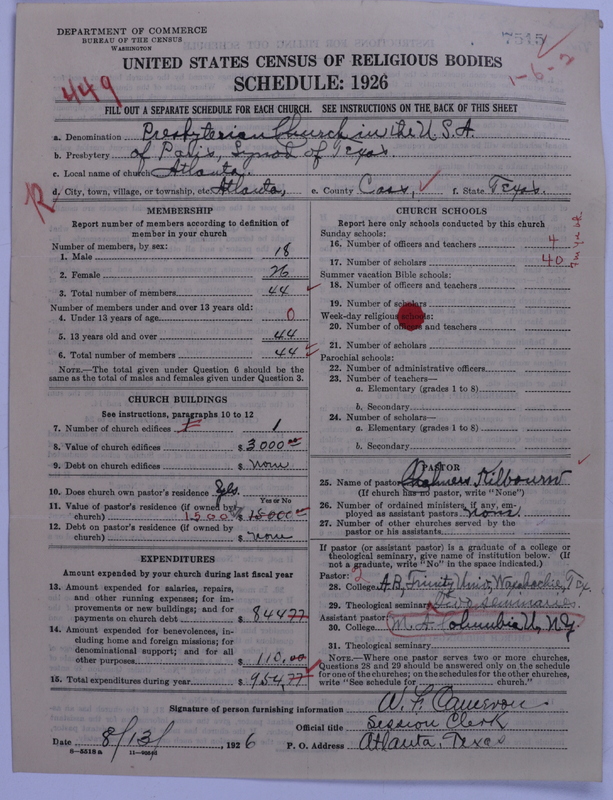 DEPARTMENT OF COMMERCE
BUREAU OF THE CENSUS
WASHINGTON
7515
1-6-2
UNITED STATES CENSUS OF RELIGIOUS BODIES
SCHEDULE: 1926
449
FILL OUT A SEPARATE SCHEDULE FOR EACH CHURCH. SEE INSTRUCTIONS ON THE BACK OF THIS SHEET
a. Denomination Presbyterian Church in the U.S.A.
b. Presbytery of Paris, Synod of Texas.
c. Local name of church Atlanta.
d. City, town, village, or township, etc. Atlanta, e. County Cass, f. State Texas.
MEMBERSHIP
Report number of members according to definition of member in your church
Number of members, by sex:
1. Male 18
2. Female 26
3. Total number of members 44
Number of members under and over 13 years old:
4. Under 13 years of age 0
5. 13 years old and over 44
6. Total number of members 44
NOTE.—The total given under Question 6 should be same as the total of males and females given under Question 3.
CHURCH BUILDINGS
See instructions, paragraphs 10 to 12
7. Number of church edifices 1
8. Value of church edifices $ 3000.00
9. Debt on church edifices $ none
10. Does church own pastor's residence Yes
Yes or No
11. Value of pastor's residence (if owned by church) 1500 $ 1500.00
12. Debt on pastor's residence (if owned by church) $ none
EXPENDITURES
Amount expended by your church during last fiscal year
13. Amount expended for salaries, repairs, and other running expenses; for improvements or new buildings; and for payments on church debt $ 844.77
14. Amount expended for benevolences, including home and foreign missions; for denominational support; and for all other purposes $ 110.00
15. Total expenditures during year $ 954.77
CHURCH SCHOOLS
Report here only schools conducted by this church
Sunday schools:
16. Number of officers and teachers 4
17. Number of scholars 40
Summer vacation Bible schools:
18. Number of officers and teachers
19. Number of scholars
Week-day religious schools:
20. Number of officers and teachers
21. Number of scholars
Parochial schools:
22. Number of administrative officers
23. Number of teachers—
a. Elementary (grades 1 to 8)
b. Secondary
24. Number of scholars—
a. Elementary (grades 1 to 8)
b. Secondary
PASTOR
25. Name of pastor Chalmers Kilbourn
(If church has no pastor, write "None")
26. Number of ordained ministers, if any, employed as assistant pastors None.
27. Number of other churches served by the pastor or his assistants
If pastor (or assistant pastor) is a graduate of a college or theological seminary, give name of institution below. (If not a graduate, write "No" in the space indicated.)
Pastor: 2
28. College A.B. Trinity Univ. Waxahachie, Tex.
29. Theological seminary Two Seminaries.
Assistant pastor:
30. College M.A. Columbia U, N.Y.
31. Theological seminary
NOTE.—Where one pastor serves two or more churches, Questions 28 and 29 should be answered only on the schedule for one of the churches; on the schedules for the other churches, write "See schedule for church."
Signature of person furnishing information W. F. Cameron
Official title Session Clerk
Date 8/13/ 1926 P. O. Address Atlanta, Texas